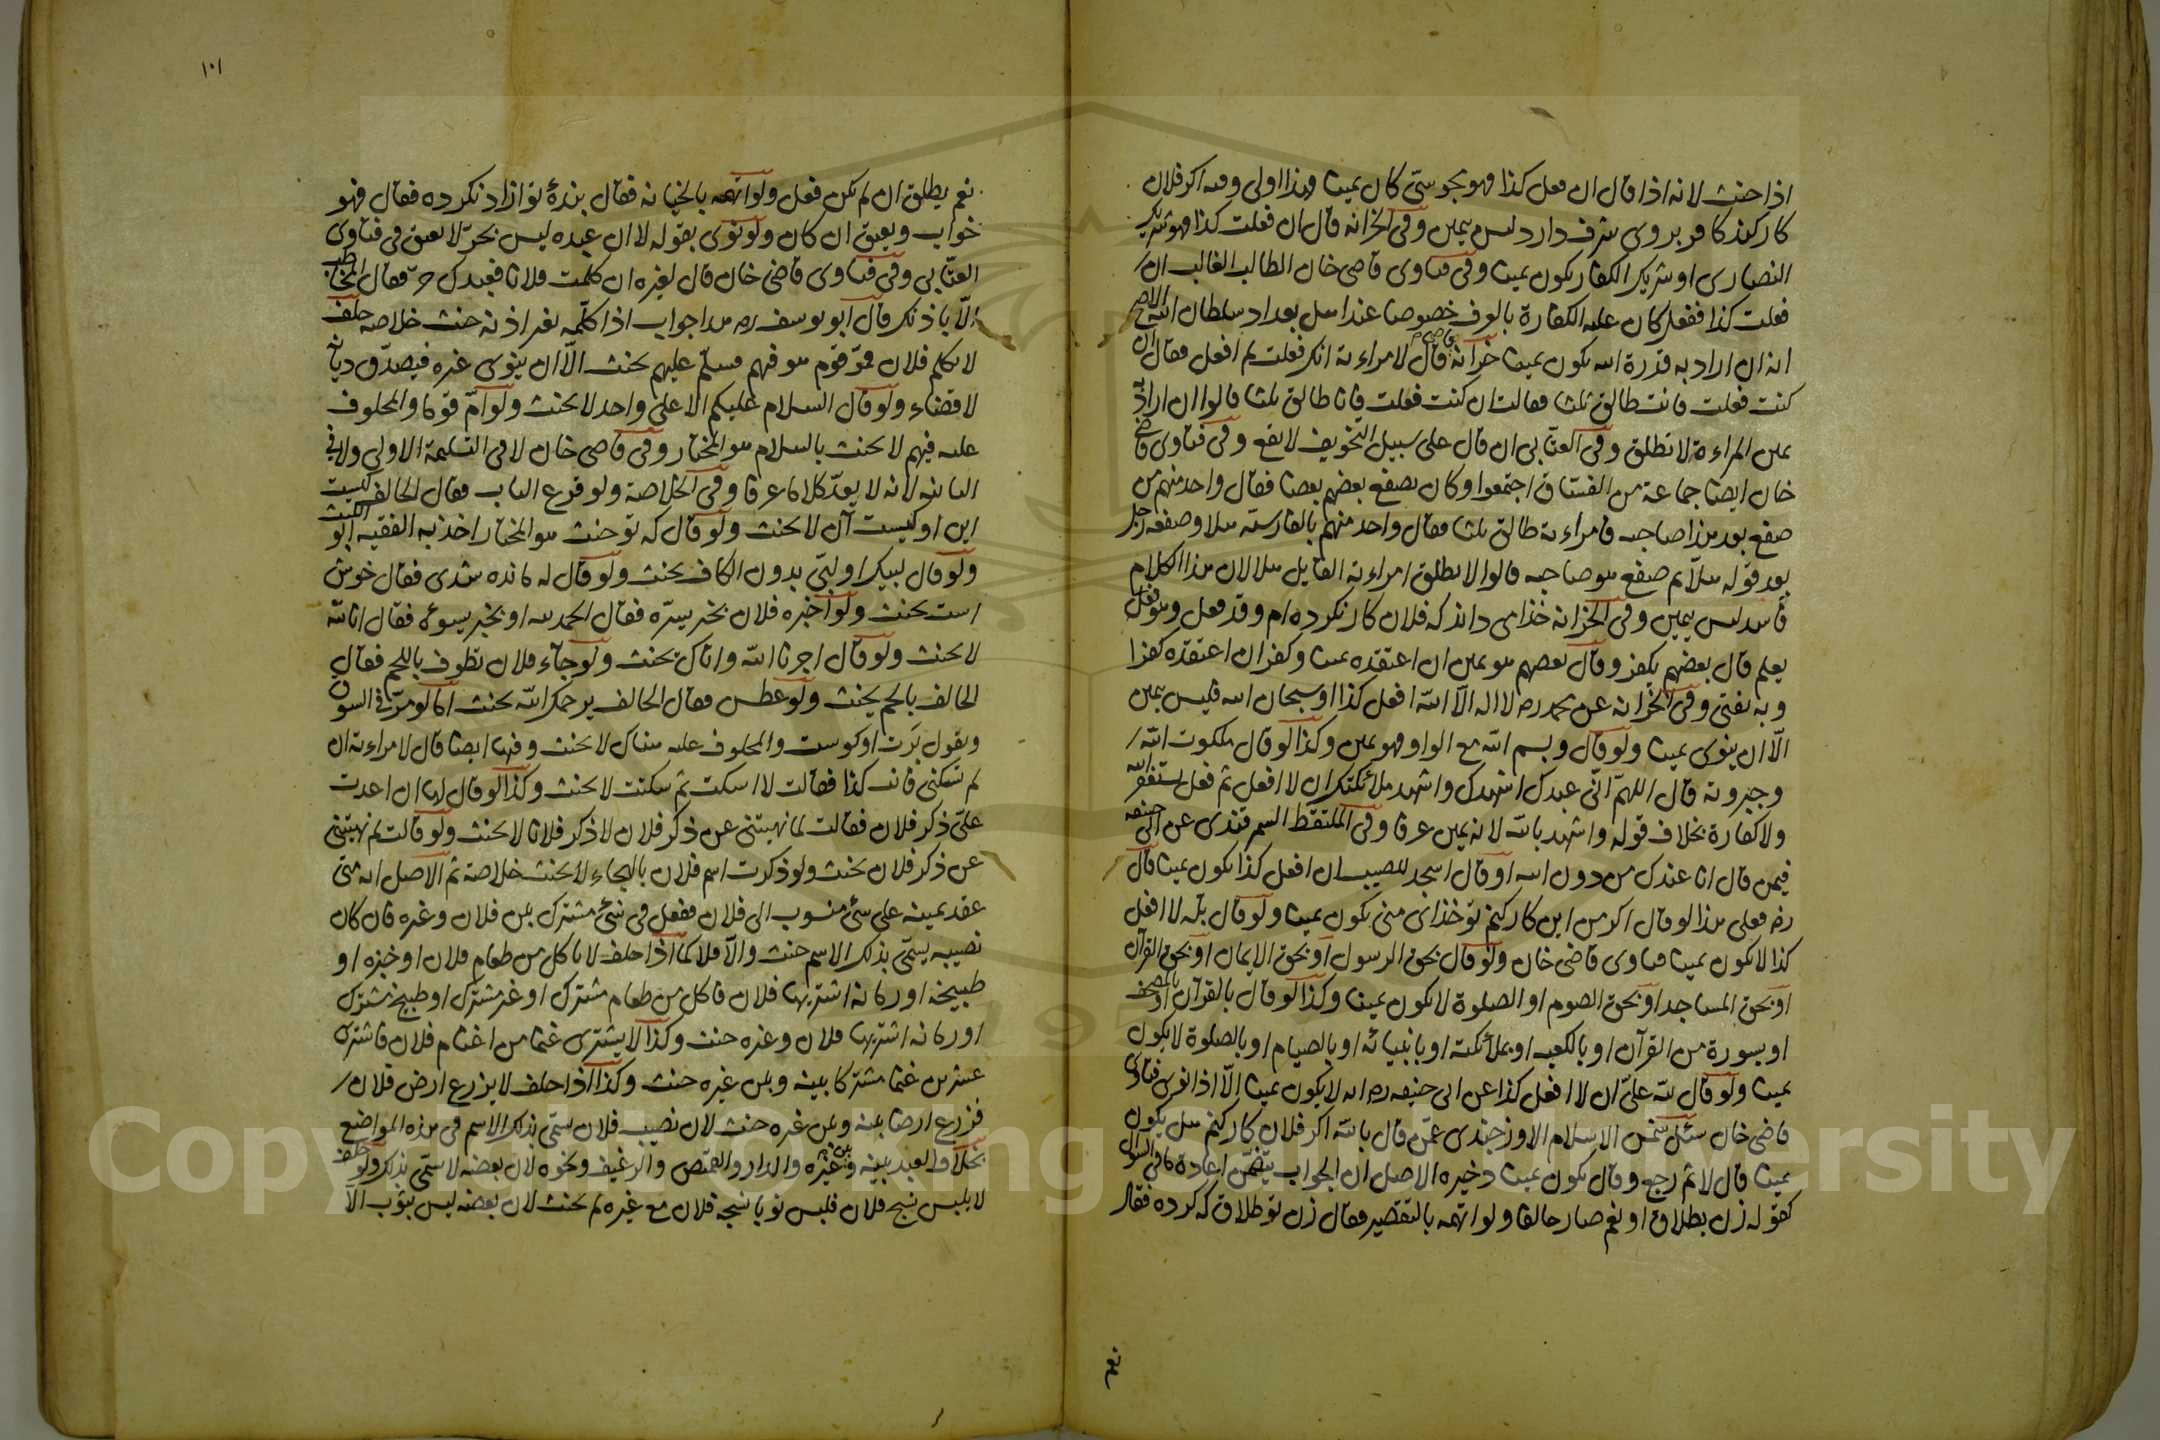 اذا حنث لانه اذا قال ان فعل كذا فهو مجوسى كان يمينا فهذا اولى وفيه اكر فلان
كار كند كافر بروى شرف دارد ليس بيمين وفى الخزانه قال ان فعلت كذا فهو شريك
النصارى او شريك الكفار يكون يمينا وفى فتاوى قاضى خان الطالب الغالب ان
فعلت كذا ففعل كان عليه الكفارة بالعرف خصوصا عند اهل بغداد سلطان الله الاصح
انه ان اراد به قدرة الله يكون يمينا خزانة قال لامراءته انكر فعلت لم افعل فقال ان
كنت فعلت فانت طالق ثلثا فقالت ان كنت فعلت فانا طالق ثلثا قالوا ان اراد به
يمين المراءة لا تطلق وفى العتابى ان قال على سبيل التخويف لا يقع وفى فتاوى قاضى
خان ايضا جماعة من الفساق اجتمعوا وكان يصفع بعضهم بعضا فقال واحد منهم من
صفع بعد هذا صاحبه فامراءته طالق ثلثا فقال واحد منهم بالفارسيه هلا وصفعه رجل
بعد قوله هلا ثم صفع هو صاحبه قالوا لا تطلق امراءة القايل هلا لان هذا الكلام
فاسد ليس بيمين وفى الخزانه خذاى داند كه فلان كار نكرده ام وقد فعل وهو
يعلم قال بعضهم يكفر وقال بعضهم هو يمين ان اعتقده يمينا وكفر ان اعتقده كفرا
وبه يفتى وفى الخزانه عن محمد ره لا اله الا الله افعل كذا او سبحان الله فليس بيمين
الا ان ينوى يمينا ولو قال وبسم الله مع الواو فهو يمين وكذا لو قال ملكوت الله
وجبروته قال اللهم انى عبدك اشهدك واشهد ملائكتك ان لا افعل ثم فعل يستغفر الله
ولا كفارة بخلاف قوله واشهد بالله لانه يمين عرفا وفى الملتقط السمرقندى عن ابى حنيفه
فيمن قال انا عندك من دون الله او قال اسجد للصليب ان افعل كذا يكون يمينا قال
رضه فعلى هذا لو قال اكر من اين كار كنم تو خذاى منى يكون يمينا ولو قال بله لا افعل
كذا لا يكون يمينا فتاوى قاضى خان ولو قال بحق الرسول او بحق الايمان او بحق القرآن
او بحق المساجد او بحق الصوم او الصلوة لا يكون يمينا وكذا لو قال بالقرآن او بالمصحف
او بسورة من القرآن او بالكعبه او بملائكته او بانبيائه او بالصيام او بالصلوة لا يكون
يمينا ولو قال لله على ان لا افعل كذا عن ابى حنيفه ره انه لا يكون يمينا الا اذا نوى فتاوى
قاضى خان سئل شمس الاسلام الاوزجندى عمن قال بالله اكر فلان كار كنم هل يكون
يمينا قال لا ثم رجع وقال يكون يمينا ذخيره الاصل ان الجواب يتضمن اعادة ما فى السوال
كقوله زن بطلاق او نعم صار حالفا ولو اتهمه بالتقصير فقال زن تو طلاق كه كرده فقال
نعم
١٠١
نعم يطلق ان لم يكن فعل ولو اتهمه بالخيانه فقال بندۀ تو ازاد نكرده فقال فهو
جواب ويعتق ان كان ولو نوى بقوله لا ان عبده ليس بحر لا يعتق فى فتاوى
العتابى وفى فتاوى قاضى خان قال لغيره ان كلمت فلانا فعبدك حر فقال المخاطب
الا باذنك قال ابو يوسف ره هذا جواب اذا كلمه بغير اذنه حنث خلاصه حلف
لا يكلم فلان فمر قوم هو فيهم فسلم عليهم يحنث الا ان ينوى غيره فيصدق ديانة
لا قضاء ولو قال السلام عليكم الا على واحد لا يحنث ولو ام قوما والمحلوف
عليه فيهم لا يحنث بالسلام هو المختار وفى قاضى خان لا فى التسليمة الاولى ولا فى
الثانيه لانه لا يعد كلاما عرفا وفى الخلاصة ولو قرع الباب فقال الحالف كيست
اين او كيست آن لا يحنث ولو قال كه تو حنث هو المختار اخذ به الفقيه ابو الليث
ولو قال لبيك او لبى بدون الكاف يحنث ولو قال له مانده شدى فقال خوش
است يحنث ولو اخبره فلان بخبر يسره فقال الحمد لله او بخبر يسوءه فقال انا لله
لا يحنث ولو قال اجرنا الله واياك يحنث ولو جاء فلان يطوف باللحم فقال
الحالف يا لحم يحنث ولو عطس فقال الحالف يرحمك الله يحنث اما لو مر فى السوق
ويقول بَرت او كوست والمحلوف عليه هناك لا يحنث وفيها ايضا قال لامراءته ان
لم تسكتى فانت كذا فقالت لا اسكت ثم سكتت لا يحنث وكذا لو قال لها ان اعدت
على ذكر فلان فقالت لما نهيتنى عن ذكر فلان لا اذكر فلانا لا يحنث ولو قالت لم نهيتنى
عن ذكر فلان يحنث ولو ذكرت اسم فلان بالهجاء لا يحنث خلاصة ثم الاصل انه متى
عقد يمينه على شئ منسوب الى فلان ففعل فى شئ مشترك بين فلان وغيره فان كان
نصيبه يسمى بذلك الاسم حنث والا فلا كما اذا حلف لا ياكل من طعام فلان او خبزه او
طبيخه او رمانه اشتريها فلان فاكل من طعام مشترك او خبز مشترك او طبيخ مشترك
او رمانه اشتريها فلان وغيره حنث وكذا لا يشترى غنما من اغنام فلان فاشترى
عشرين غنما مشتركا بينه وبين غيره حنث وكذا اذا حلف لا يزرع ارض فلان
فزرع ارضا بينه وبين غيره حنث لان نصيب فلان يسمى بذلك الاسم فى هذه المواضع
بخلاف العبد بينه وبين غيره والدار والقميص والرغيف ونحوه لان بعضه لا يسمى بذلك ولو حلف
لا يلبس نسج فلان فلبس ثوبا نسجه فلان مع غيره لم يحنث لان بعضه ليس بثوب الا
Copyright © King Saud University